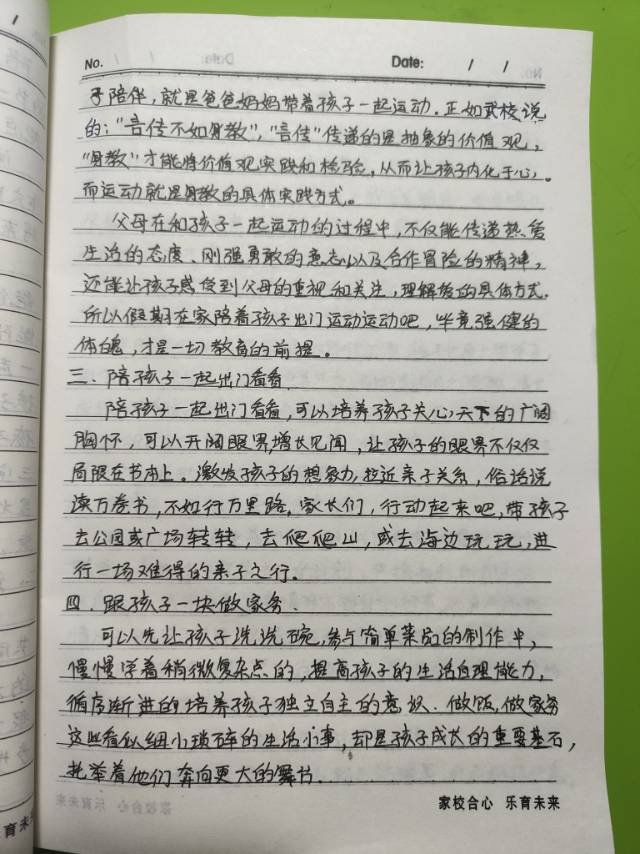 No.
Date: / /
子陪伴，就是爸爸妈妈带着孩子一起运动。正如武校说
的："言传不如身教"，"言传"传递的是抽象的价值观，
"身教"才能将价值观实践和检验，从而让孩子内化于心，
而运动就是身教的具体实践方式。
父母在和孩子一起运动的过程中，不仅能传递热爱
生活的态度、刚强勇敢的意志以及合作冒险的精神，
还能让孩子感受到父母的重视和关注，理解爱的具体方式。
所以假期在家陪着孩子出门运动运动吧，毕竟强健的
体魄，才是一切教育的前提。
三．陪孩子一起出门看看
陪孩子一起出门看看，可以培养孩子关心天下的广阔
胸怀，可以开阔眼界增长见闻，让孩子的眼界不仅仅
局限在书本上。激发孩子的想象力，拉近亲子关系，俗话说
读万卷书，不如行万里路，家长们，行动起来吧，带孩子
去公园或广场转转，去爬爬山，或去海边玩玩，进
行一场难得的亲子之行。
四．跟孩子一块做家务．
可以先让孩子洗洗碗，参与简单菜品的制作中，
慢慢学着稍微复杂点的，提高孩子的生活自理能力，
循序渐进的培养孩子独立自主的意识．做饭，做家务
这些看似细小琐碎的生活小事，却是孩子成长的重要基石，
托举着他们奔向更大的舞台．
家校合心 乐育未来